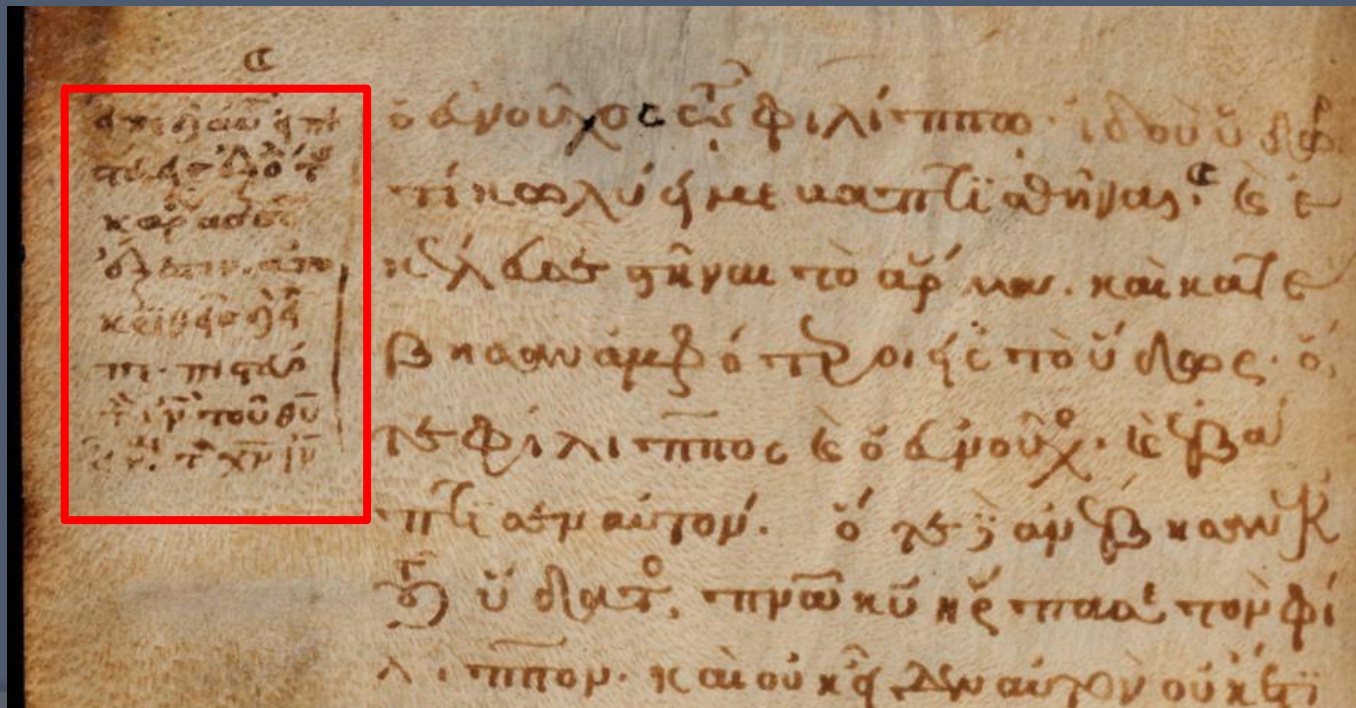 εἶπε δὲ αὐ εἰ πι
καρ σου
ἔξεστιν. ἀπο
κριθεὶς δὲ εἶ
πε· πιστεύω
τὸν υν τοῦ θυ
εἶναι τὸν χν ιν
ὁ εὐνοῦχος τῷ φιλίππῳ· ἰδοὺ ὕδωρ
τί κωλύει με βαπτισθῆναι· καὶ ἐ
κέλευσε στῆναι τὸ ἅρμα. καὶ κατέ
βησαν ἀμφότεροι εἰς τὸ ὕδωρ· ὅ,
τε φίλιππος καὶ ὁ εὐνοῦχος. καὶ ἐβά
πτισεν αὐτόν. ὅτε δὲ ἀνέβησαν ἐκ
τοῦ ὕδατος, πνα κυ ἥρπασε τὸν φί
λιππον. καὶ οὐκ εἶδεν αὐτὸν οὐκέτι